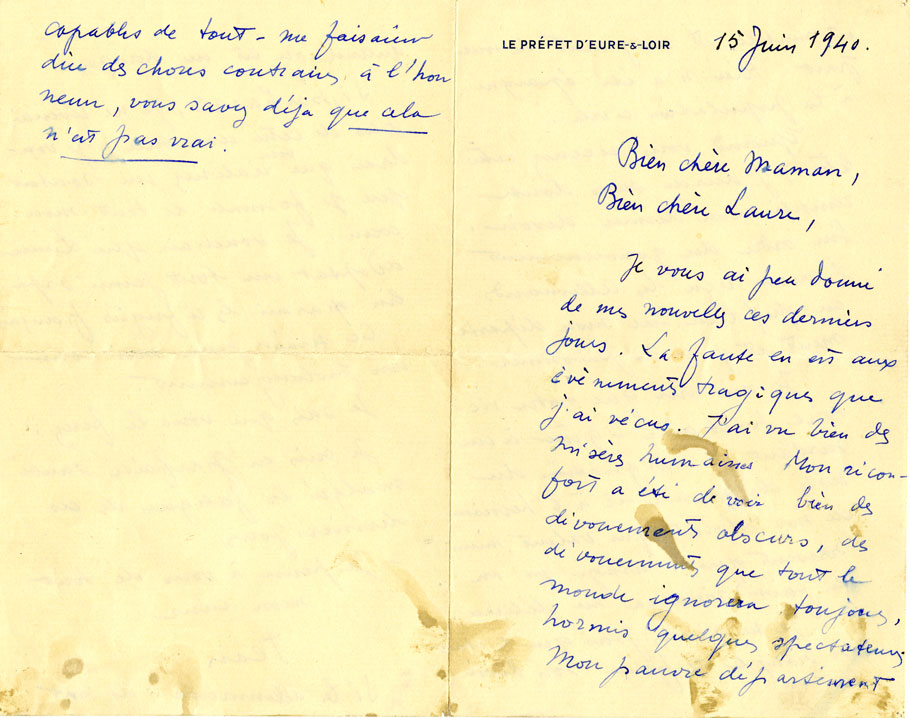 LE PRÉFET D'EURE-&-LOIR
15 Juin 1940.
Bien chère Maman,
Bien chère Laure,
Je vous ai peu donné
de mes nouvelles ces derniers
jours. La faute en est aux
évènements tragiques que
j'ai vécus. J'ai vu bien des
misères humaines Mon récon-
fort a été de voir bien des
dévouements obscurs, des
dévouements que tout le
monde ignorera toujours,
hormis quelques spectateurs
Mon pauvre département
capables de tout - me faisaient
dire des choses contraires à l'hon
neur, vous savez déjà que cela
n'est pas vrai.